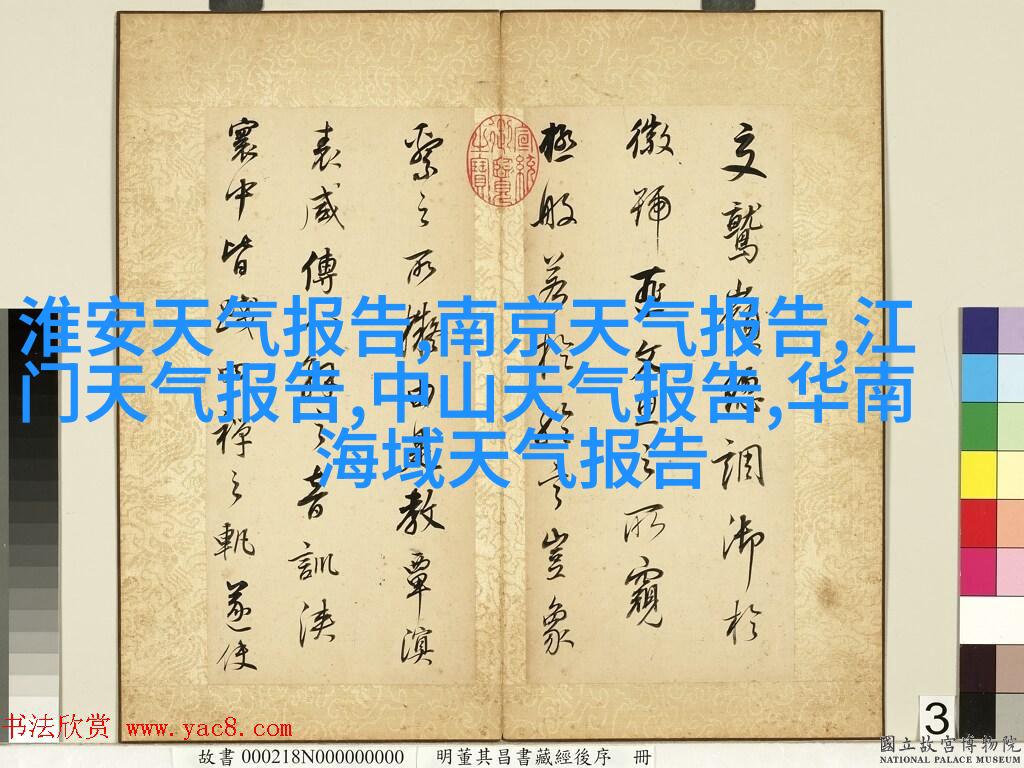 淮安天气报告,南京天气报告,江
门天气报告,中山天气报告,华南
海域天气报告
文鷲調御於
徽號匪文宣之所窺
極般若於言豈象
繫之所由是教覃溟
表咸傳之音訓浹
寰中皆禪之軌遂使
書法欣赏 www.yac8.com
3
故書 000218N000000000
明董其昌書藏經後序 冊
國立故宮博物院
NATIONAL PALACE MUSEUM